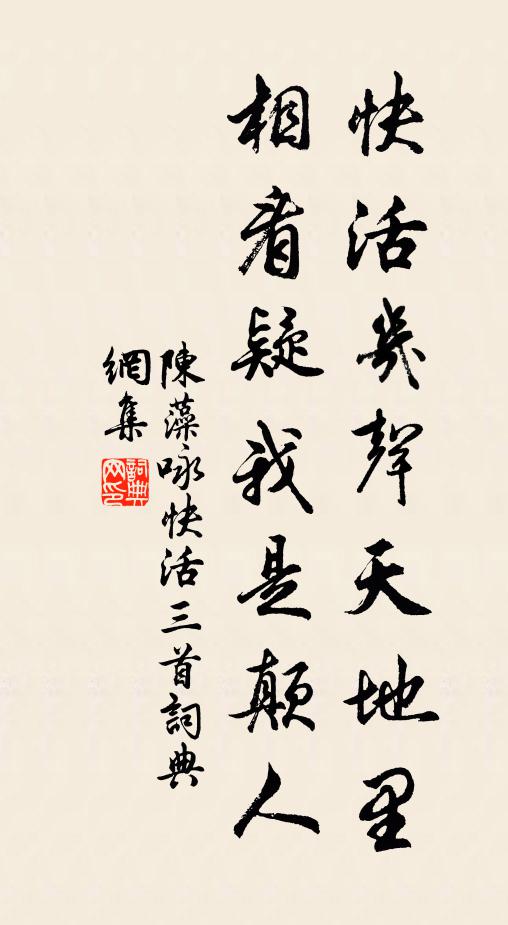 快活幾聲天地里
相看疑我是顛人
陳藻咏快活三首詞典
網集
詞典网印